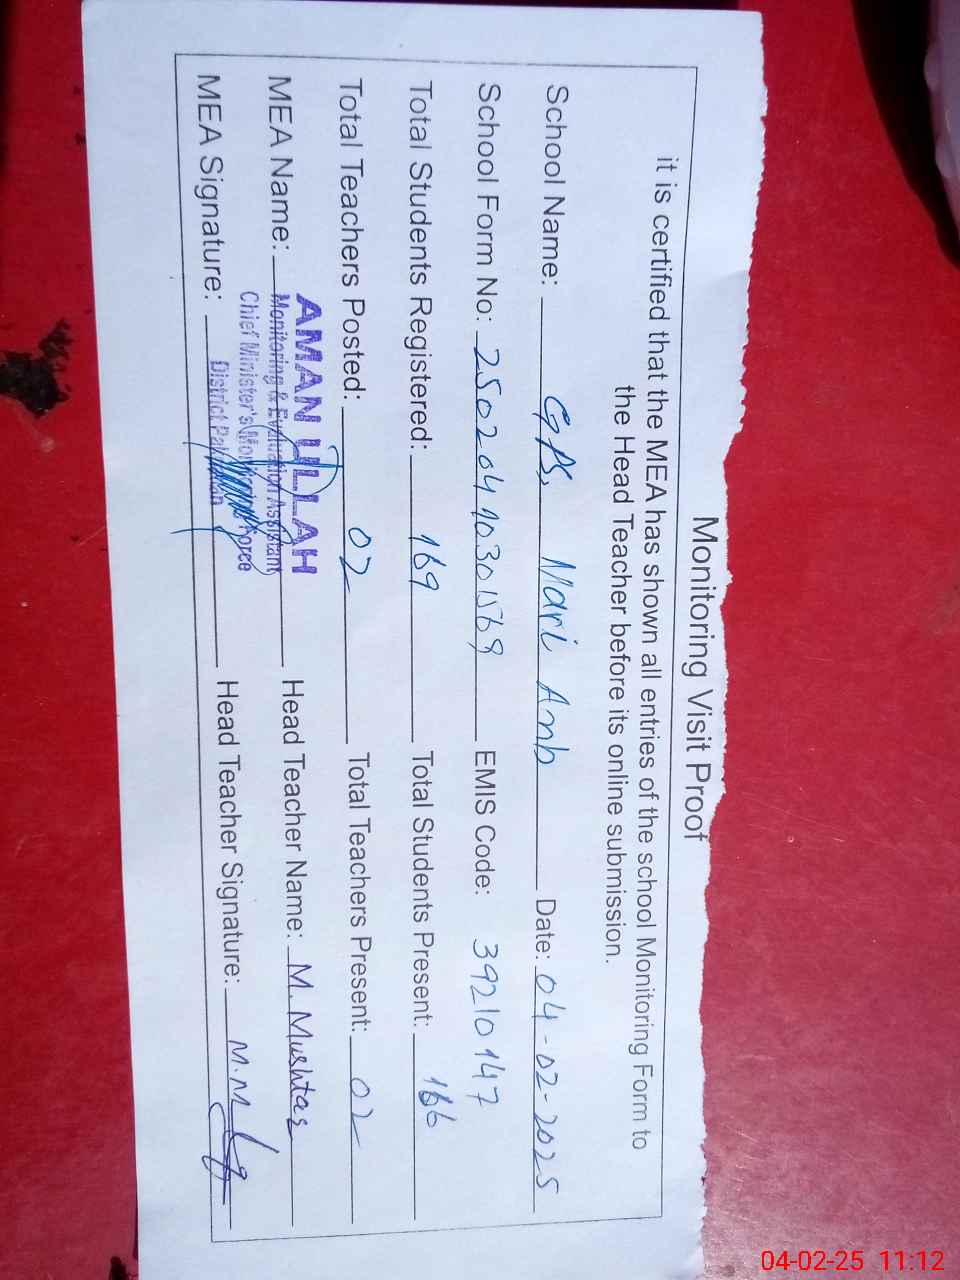 Monitoring Visit Proof
it is certified that the MEA has shown all entries of the school Monitoring Form to
the Head Teacher before its online submission.
School Name: GPS, Mari Amb Date: 04-02-2025
School Form No: EMIS Code: 39210147
Total Students Registered: 169 Total Students Present: 166
Total Teachers Posted: 02 Total Teachers Present: 02
AMAN ULLAH
MEA Name: Monitoring & Evaluation Assistant Head Teacher Name: M. Mushtaq
Chief Minister's Monitoring Force
MEA Signature: District Head Teacher Signature: M.M
04-02-25 11:12